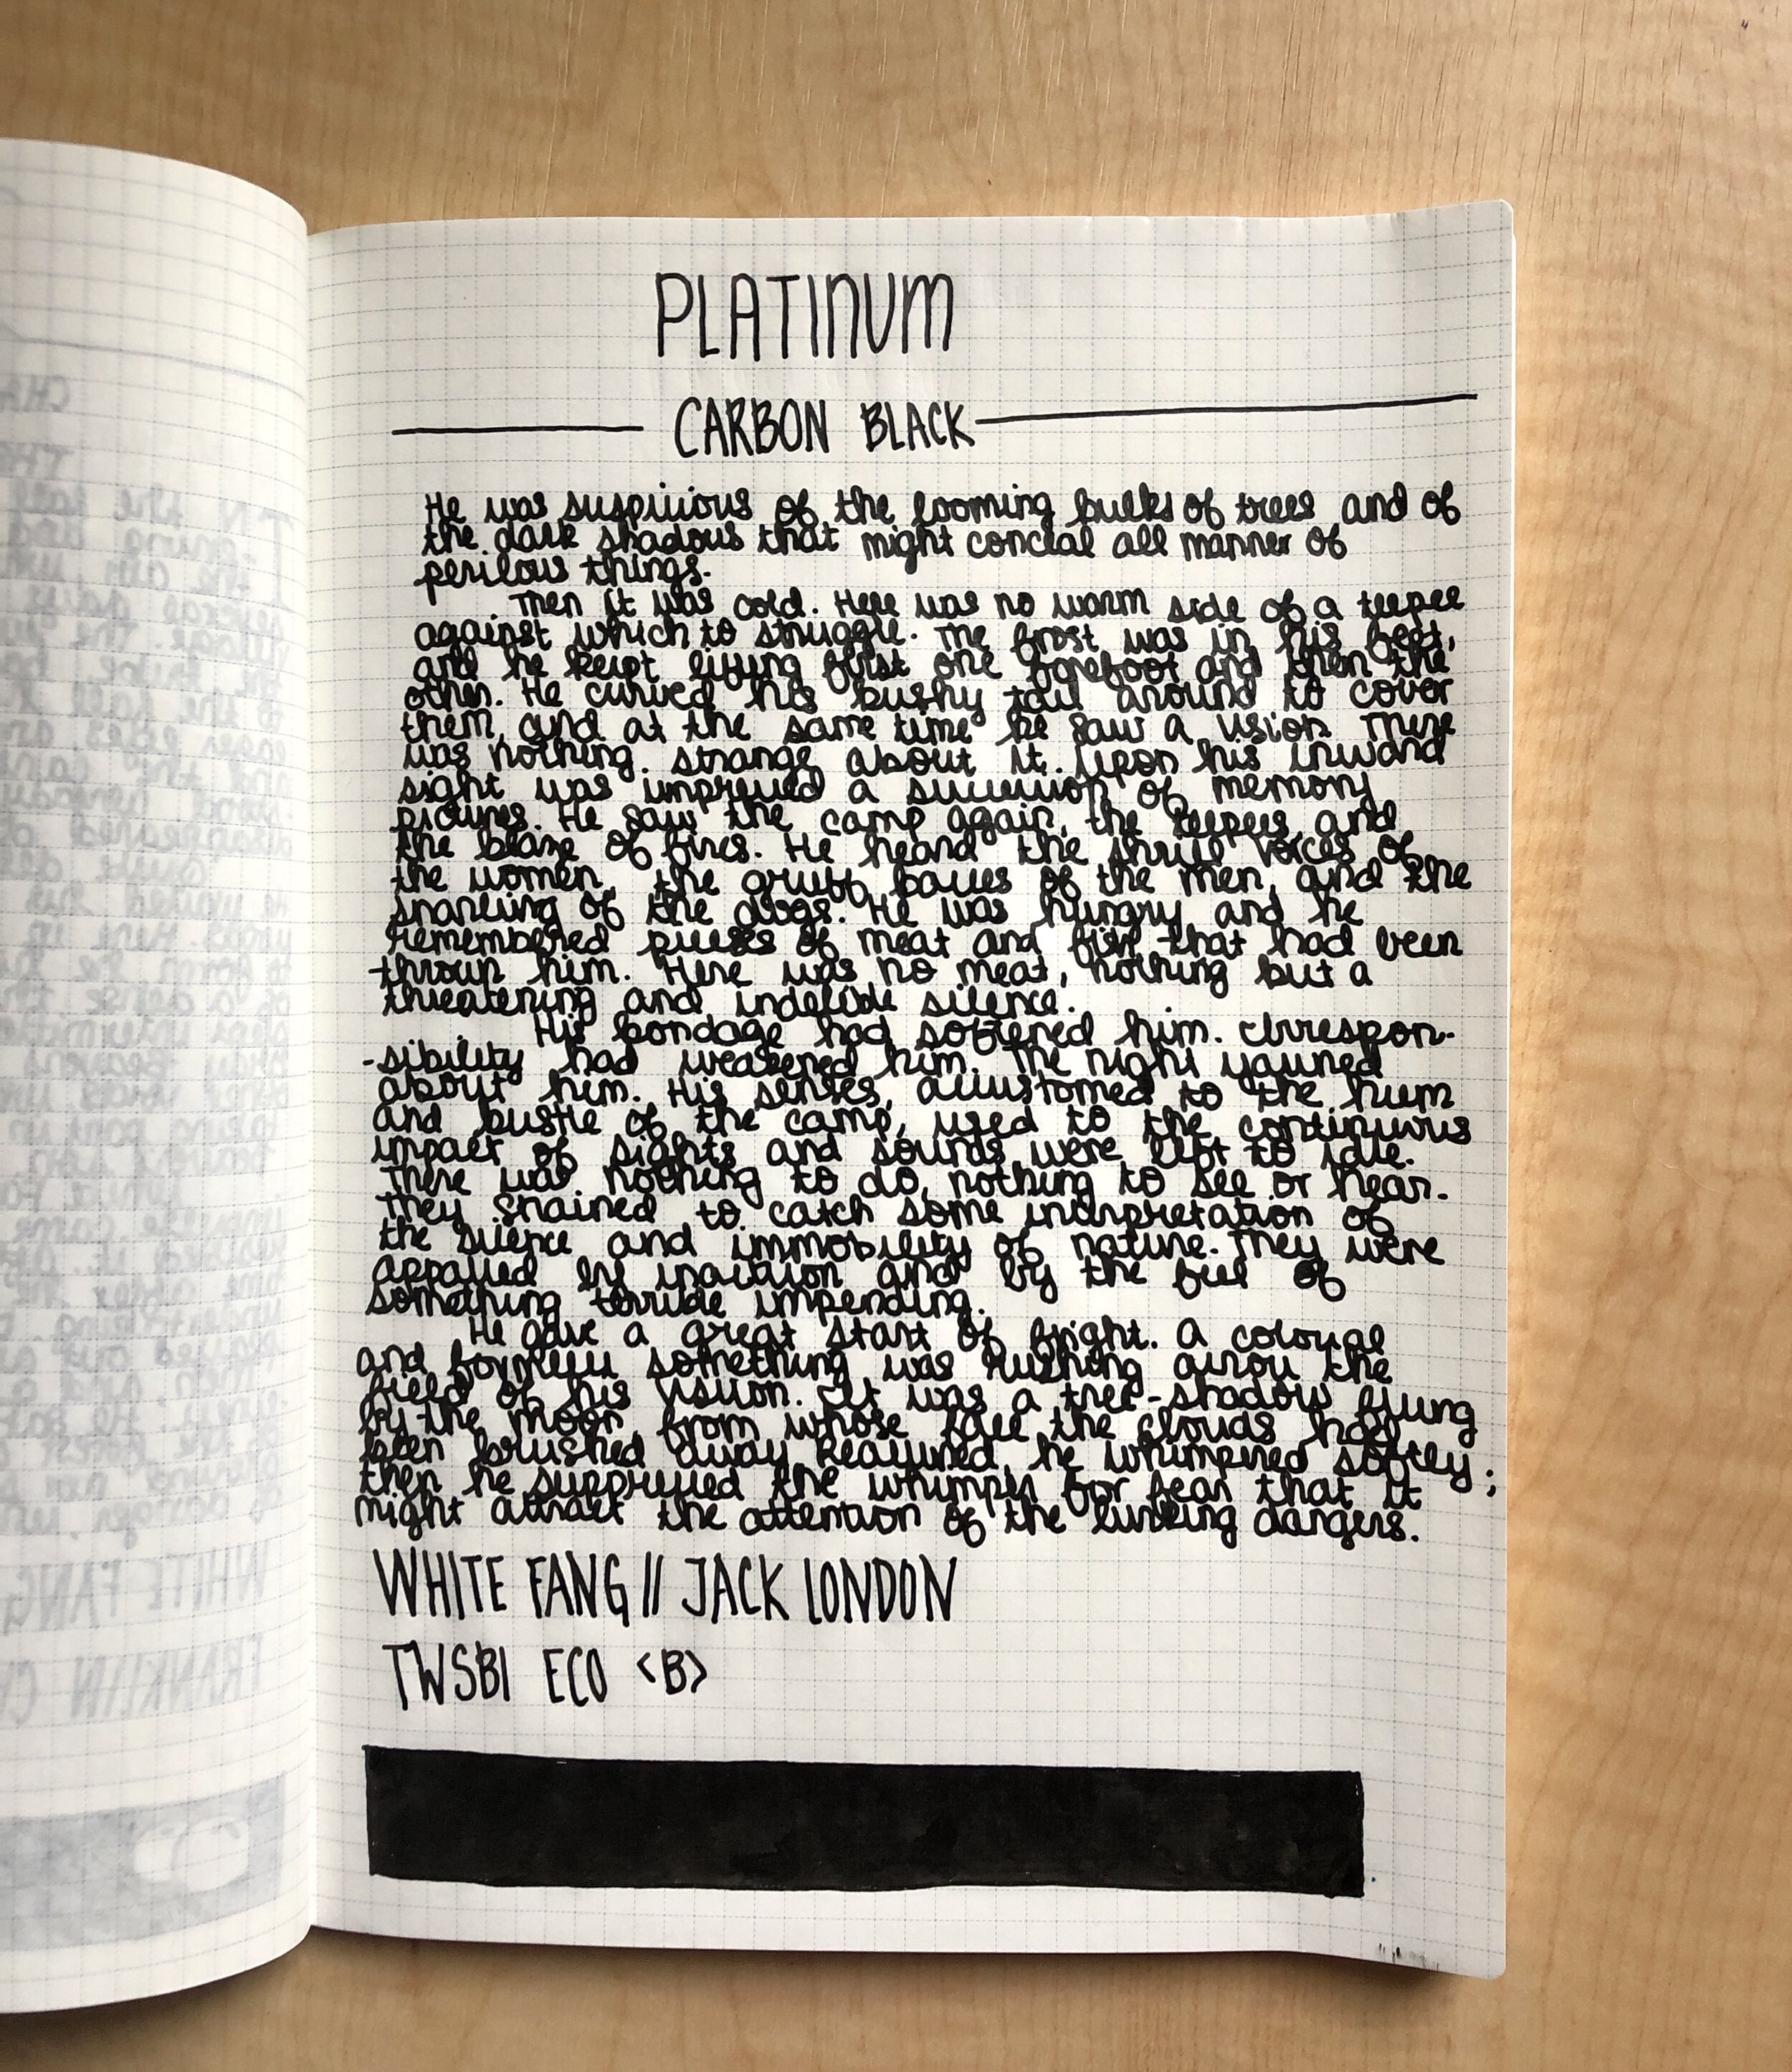 PLATINUM
CARBON BLACK
He was suspicious of the looming bulks of trees and of
the dark shadows that might conceal all manner of
perilous things.
Then it was cold. Here was no warm side of a teepee
against which to struggle. The frost was in his feet,
and he kept lifting first one forefoot and then the
other. He curved his bushy tail around to cover
them, and at the same time he saw a vision. There
was nothing strange about it. Upon his inward
sight was impressed a succession of memory
pictures. He saw the camp again, the teepees, and
the blaze of fires. He heard the shrill voices of
the women, the gruff basses of the men, and the
snarling of the dogs. He was hungry and he
remembered pieces of meat and fish that had been
thrown him. Here was no meat, nothing but a
threatening and inedible silence.
His bondage had softened him. Irrespon-
-sibility had weakened him. The night yawned
about him. His senses, accustomed to the hum
and bustle of the camp, used to the continuous
impact of sights and sounds were left to idle.
There was nothing to do, nothing to see or hear.
They strained to catch some interpretation of
the silence and immobility of nature. They were
appalled by inaction and by the feel of
something terrible impending.
He gave a great start of fright. A colossal
and formless something was rushing across the
field of his vision. It was a tree-shadow flung
by the moon, from whose face the clouds had
been brushed away. Reassured, he whimpered softly;
then he suppressed the whimper for fear that it
might attract the attention of the lurking dangers.
WHITE FANG // JACK LONDON
TWSBI ECO <B>